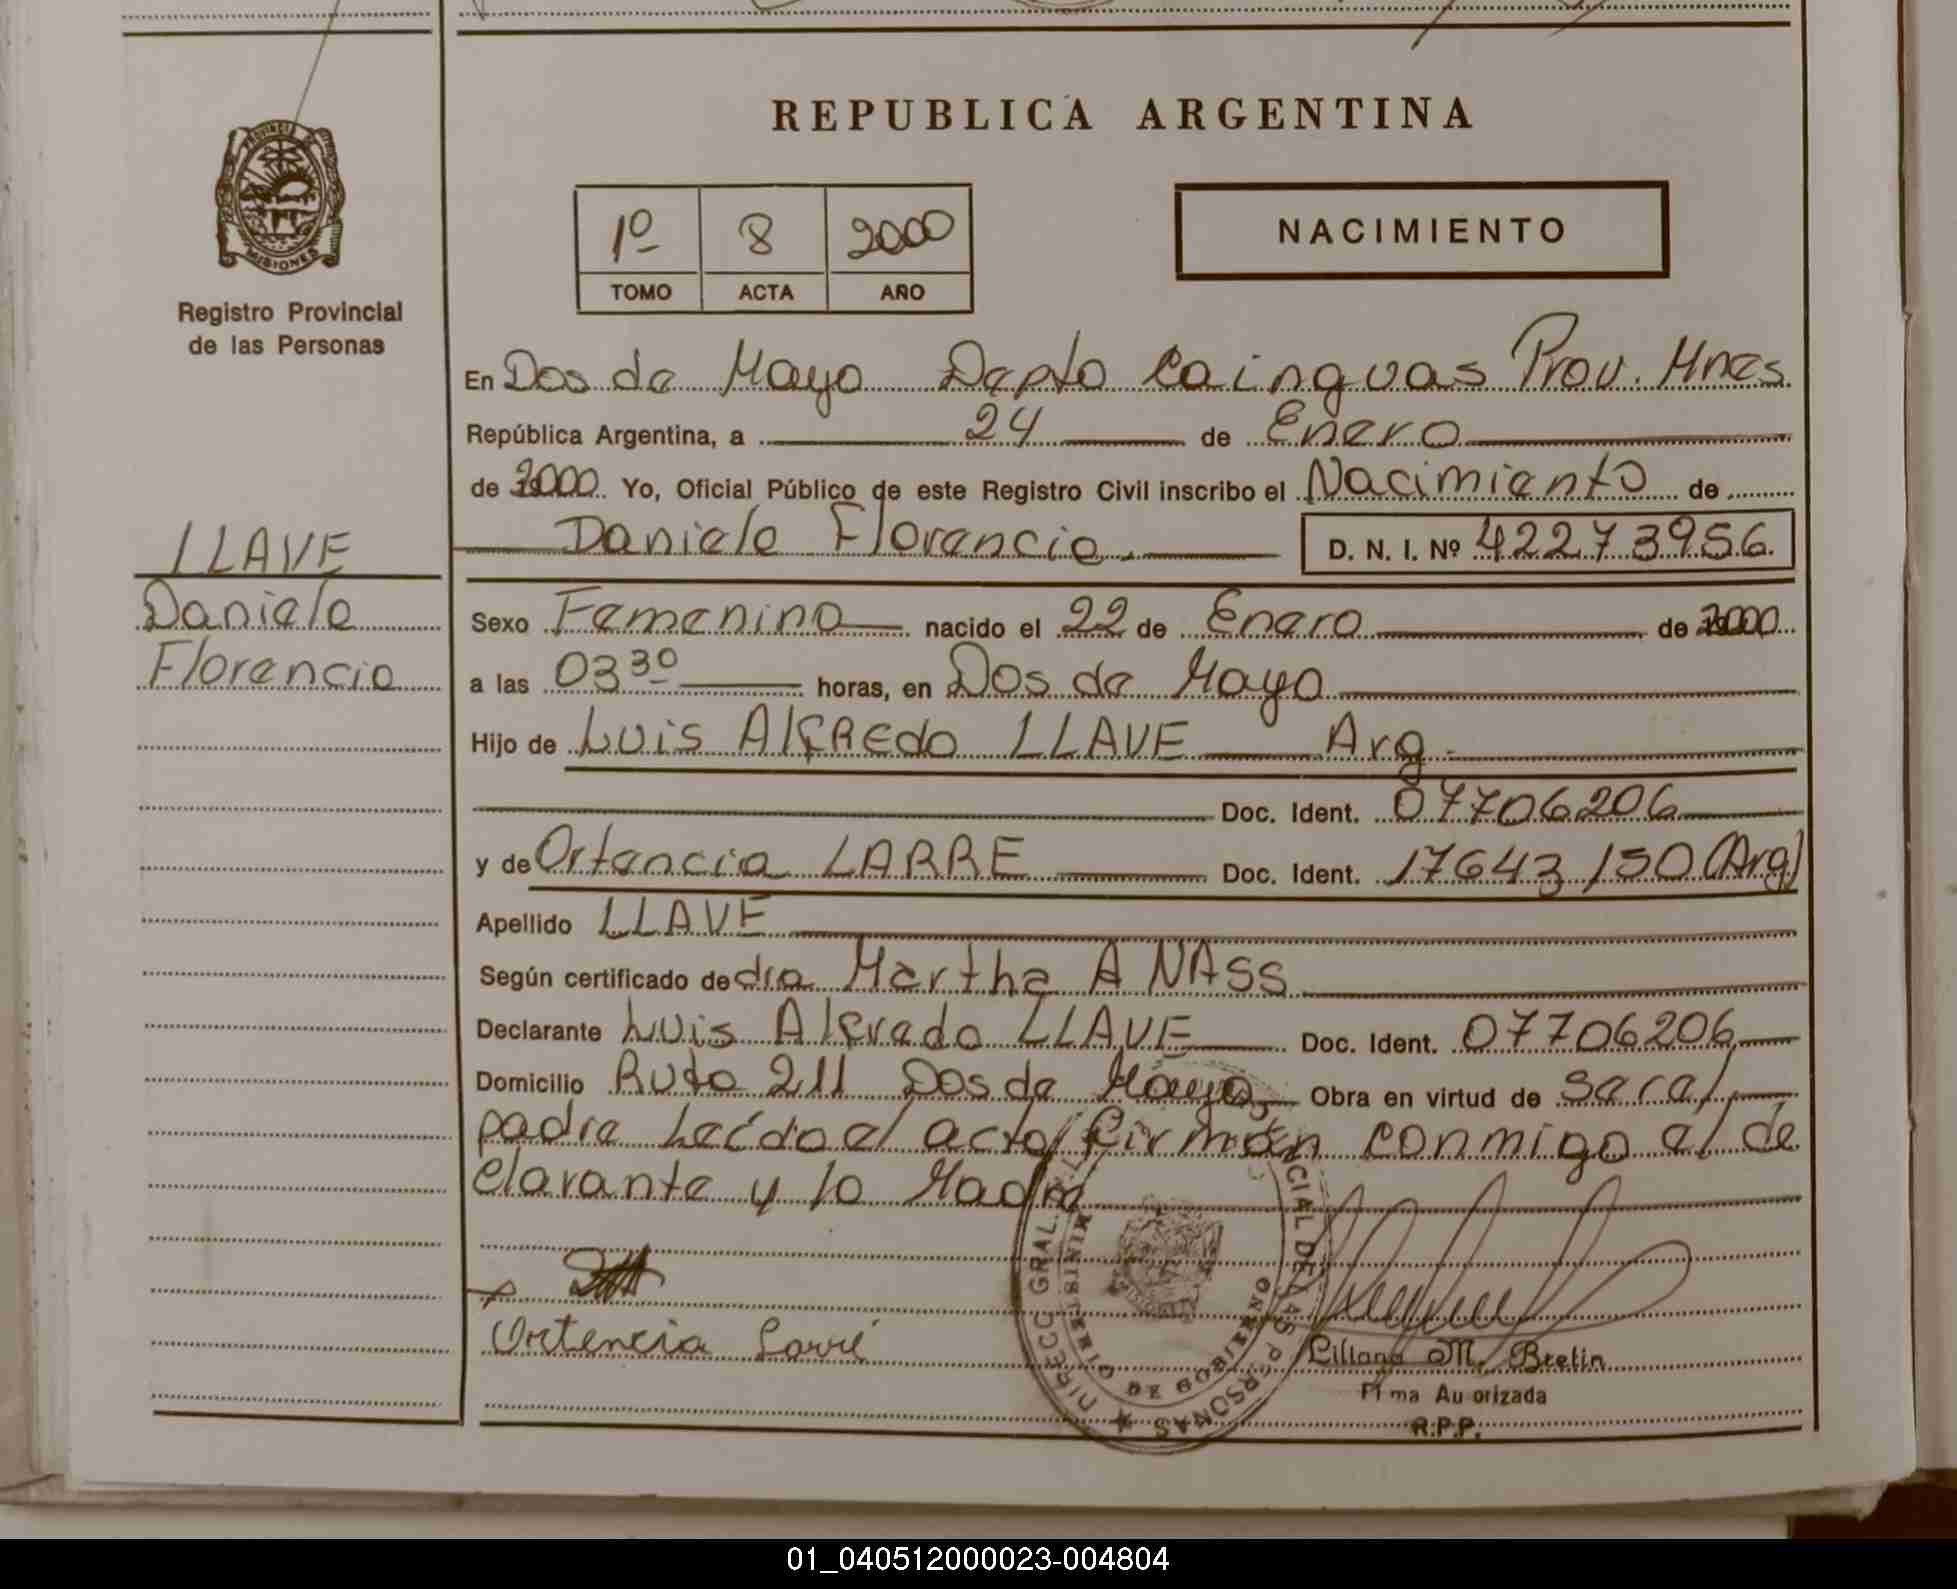 REPUBLICA ARGENTINA
PROVINCIA DE
MISIONES
Registro Provincial
de las Personas
1º 8 2000
TOMO ACTA AÑO
NACIMIENTO
En Dos de Mayo Depto Cainguas Prov. Mnes
República Argentina, a 24 de Enero
de 2000 Yo, Oficial Público de este Registro Civil inscribo el Nacimiento de
Daniela Florencia.
D. N. I. Nº 42273956
LLAVE
Daniela
Florencia
Sexo Femenino nacido el 22 de Enero de 2000
a las 03 30 horas, en Dos de Mayo
Hijo de Luis AlfRedo LLAVE Arg.
Doc. Ident. 07706206
y de Ortencia LARRE Doc. Ident. 17643150 (Arg)
Apellido LLAVE
Según certificado de dra Martha A NASS
Declarante Luis Alfredo LLAVE Doc. Ident. 07706206
Domicilio Ruta 211 Dos de Mayo Obra en virtud de ser el
padre Leída el acta firman conmigo el de
clarante y la Madre
Ortencia Larré
DIRECC GRAL. CIAL DE LAS PERSONAS
MINISTERIO DE GOBIERNO
Liliana M. Brelin
Firma Autorizada
R.P.P.
01_040512000023-004804